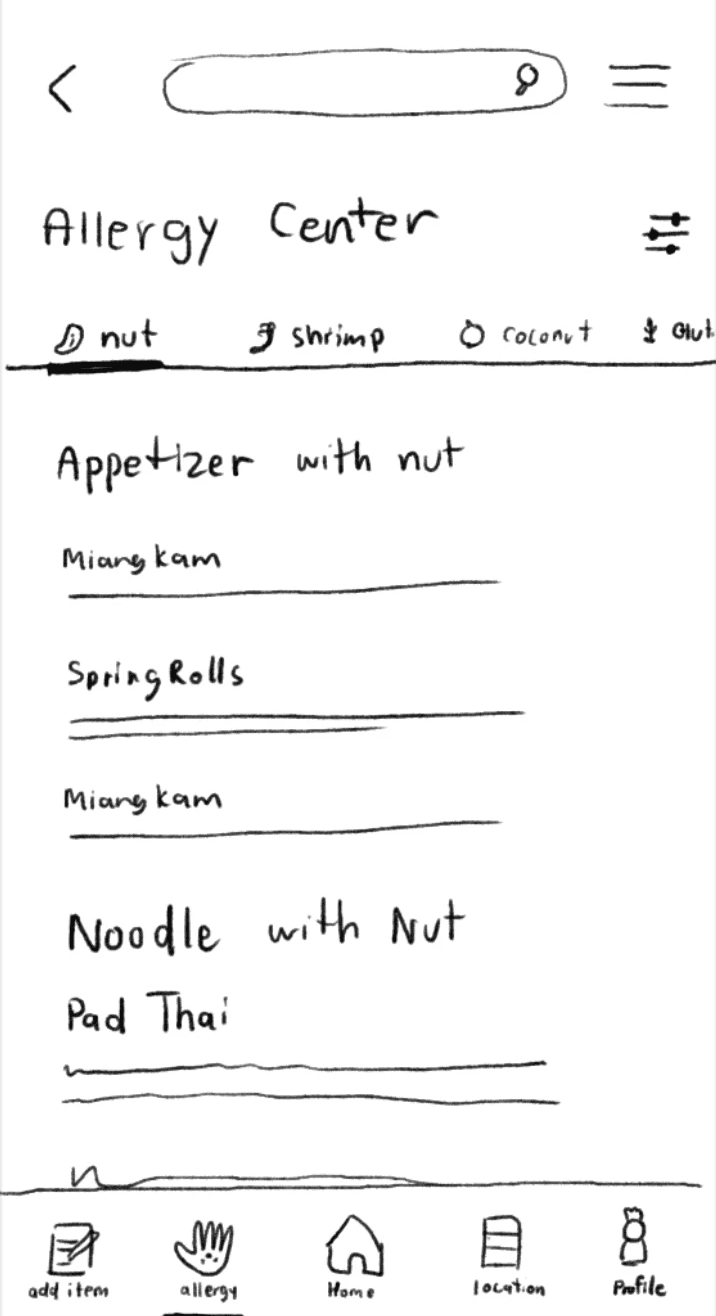 Allergy Center
nut shrimp coconut Glut
Appetizer with nut
Miang kam
Spring Rolls
Miang kam
Noodle with Nut
Pad Thai
add item allergy Home location Profile